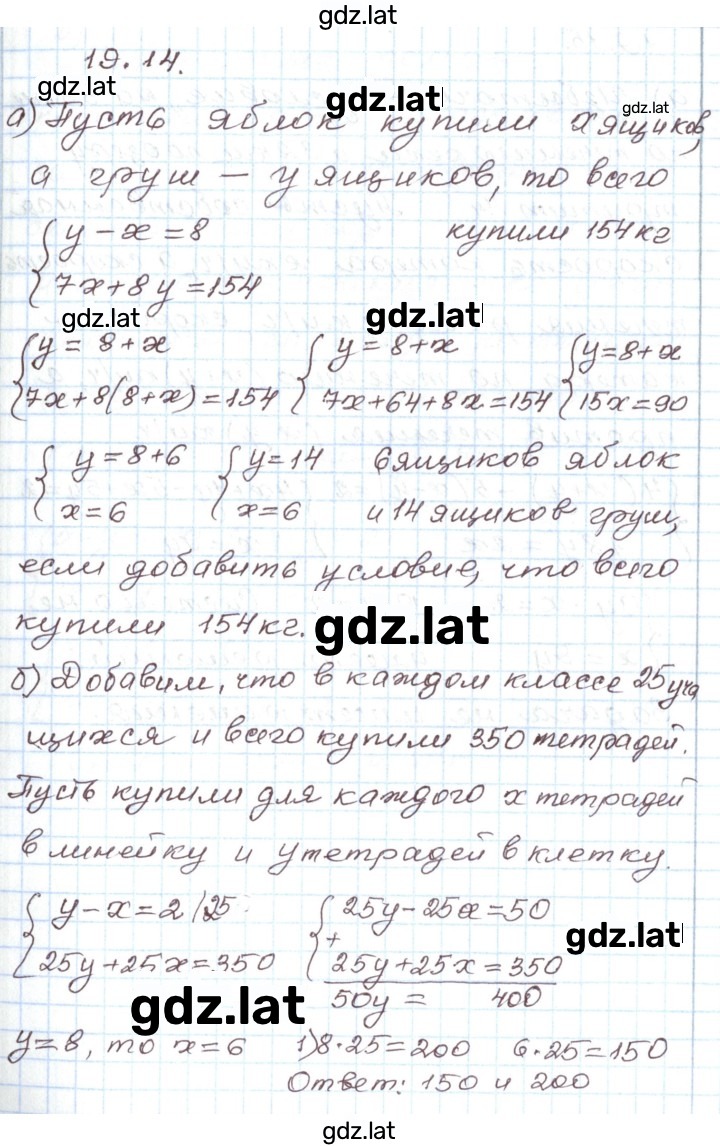 gdz.lat
19.14.
gdz.lat
gdz.lat
gdz.lat
а) Пусть яблок купили x ящиков,
а груш – y ящиков, то всего
y – x = 8 купили 154 кг
7x + 8y = 154
gdz.lat
gdz.lat
y = 8 + x y = 8 + x y = 8 + x
7x + 8(8 + x) = 154 7x + 64 + 8x = 154 15x = 90
y = 8 + 6 y = 14 6 ящиков яблок
x = 6 x = 6 и 14 ящиков груш,
если добавить условие, что всего
купили 154 кг.
gdz.lat
б) Добавим, что в каждом классе 25 уча
щихся и всего купили 350 тетрадей.
Пусть купили для каждого x тетрадей
в линейку и y тетрадей в клетку.
y – x = 2 /25 25y – 25x = 50
gdz.lat
25y + 25x = 350 + 25y + 25x = 350
gdz.lat
50y = 400
y = 8, то x = 6 1) 8·25 = 200 6·25 = 150
Ответ: 150 и 200
gdz.lat